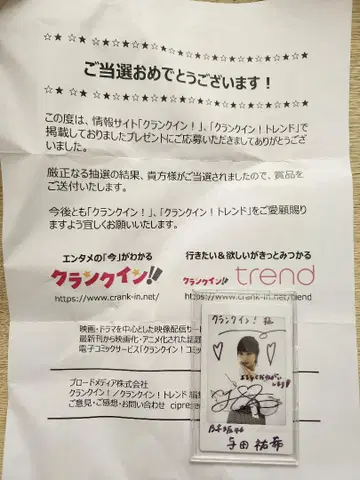 ☆★ ☆★ ☆★☆★☆★☆★☆★☆★☆★☆★☆★☆★☆★
ご当選おめでとうございます！
☆★ ☆★ ☆★☆★☆★☆★☆★☆★☆★☆★☆★☆★☆★
この度は、情報サイト「クランクイン！」、「クランクイン！トレンド」で
掲載しておりましたプレゼントにご応募いただきましてありがとうござ
いました。
厳正なる抽選の結果、貴方様がご当選されましたので、賞品を
ご送付いたします。
今後とも「クランクイン！」、「クランクイン！トレンド」をご愛顧賜り
ますよう宜しくお願いいたします。
エンタメの「今」がわかる
クランクイン!!
https://www.crank-in.net/
行きたい＆欲しいがきっとみつかる
クランクイン!! trend
https://www.crank-in.net/trend
映画・ドラマを中心とした映像配信サー
最新刊から映画化・アニメ化された話題
電子コミックサービス「クランクイン！コミッ
ブロードメディア株式会社
クランクイン！／クランクイン！トレンド 編
ご意見・ご感想・お問い合わせ cipres
クランクイン！ 様
乃木坂46
与田祐希